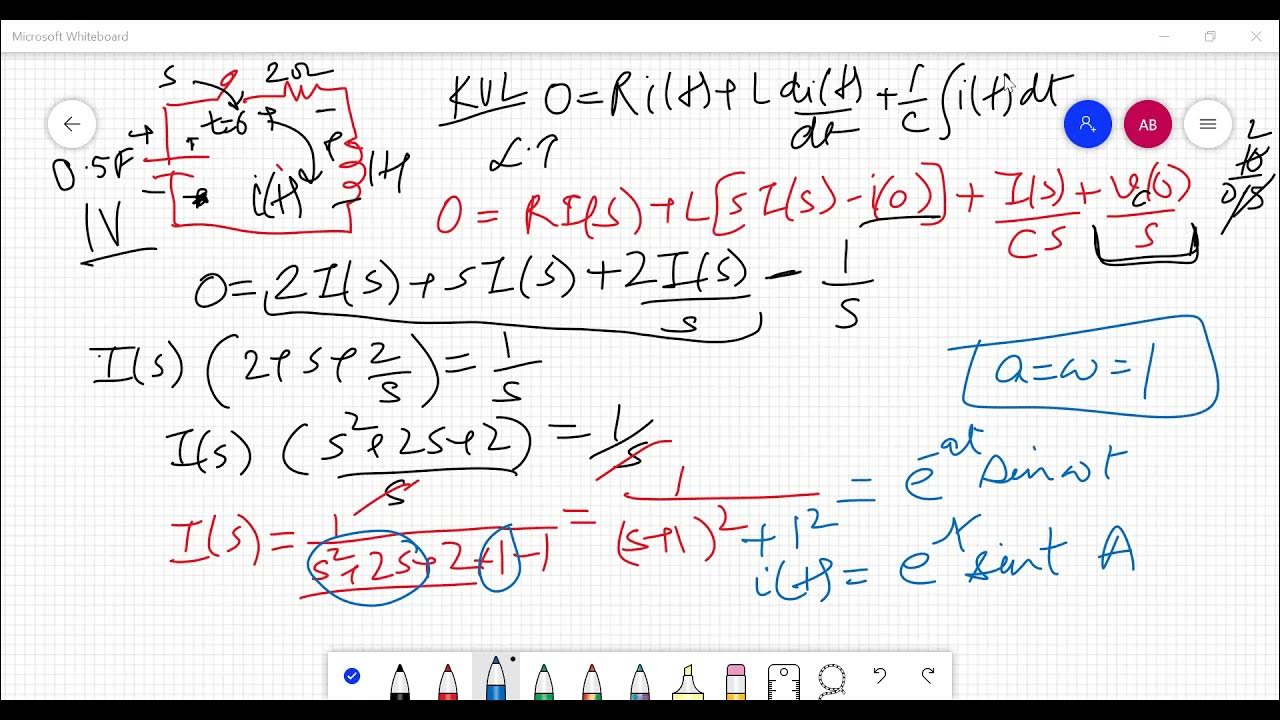 Microsoft Whiteboard
S 2Ω
t=0
0.5F
1V
i(t)
1H
KVL 0 = R i(t) + L di(t)/dt + 1/C ∫ i(t) dt
L.T
AB
0 = R I(s) + L[s I(s) - i(0)] + I(s)/Cs + Vc(0)/s
0 = 2I(s) + sI(s) + 2I(s)/s - 1/s
I(s) (2+s+2/s) = 1/s
a=ω=1
I(s) (s²+2s+2)/s = 1/s
I(s) = 1/(s²+2s+2+1-1) = 1/((s+1)²+1²) = e^-at sin ωt
i(t) = e^-t sin t A